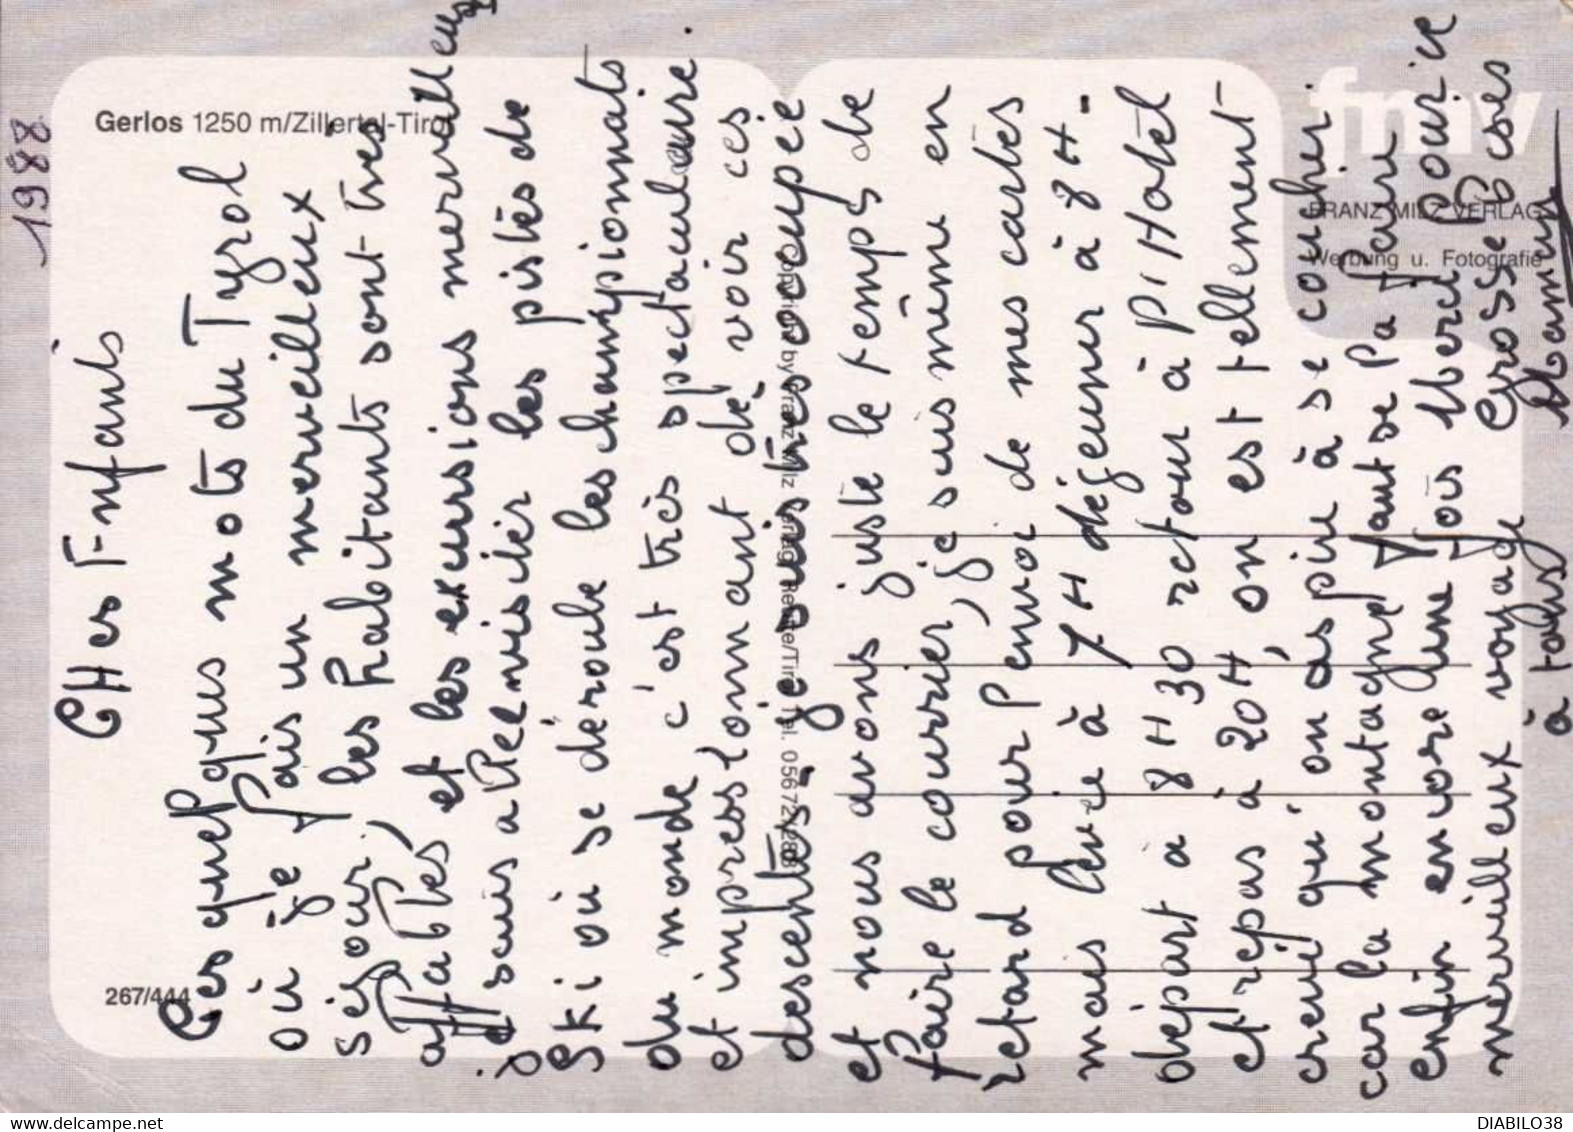 1988
Gerlos 1250 m/Zillertal-Tirol
267/444
fmv
FRANZ MILZ VERLAG
Werbung u. Fotografie
CHers Enfants
Ces quelques mots du Tyrol
où je fais un merveilleux
séjour, les habitants sont très
affables et les excursions merveilleux
je suis allé visiter les pistes de
Ski où se déroule les championnats
du monde c'est très spectaculaire.
et impressionnant de voir ces
descentes - je suis très occupée
et nous avons juste le temps de
faire le courrier, je suis même en
retard pour l'envoi de mes cartes
mais levée à 7H déjeuner à 8H -
départ à 8H30 retour à l'Hotel
et repas à 20H, on est tellement
crevé qu'on aspire à se coucher.
car la montagne faut se la faire
enfin encore une fois Merci pour ce
merveilleux voyage Grosses Bises
à tous Mamy